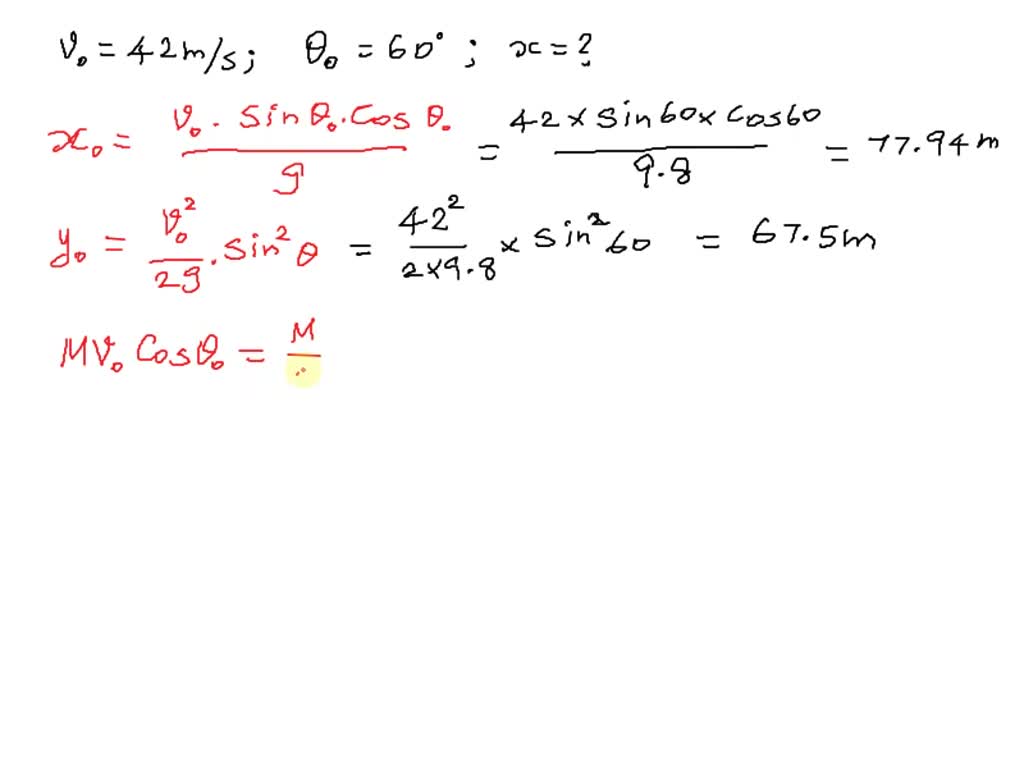 v₀ = 42 m/s ; θ₀ = 60° ; x = ?
x₀ = v₀ · sin θ₀ · cos θ₀ / g = 42 × sin 60 × cos 60 / 9.8 = 77.94 m
y₀ = v₀² / 2g · sin² θ = 42² / 2×9.8 × sin² 60 = 67.5 m
M v₀ cos θ₀ = M /